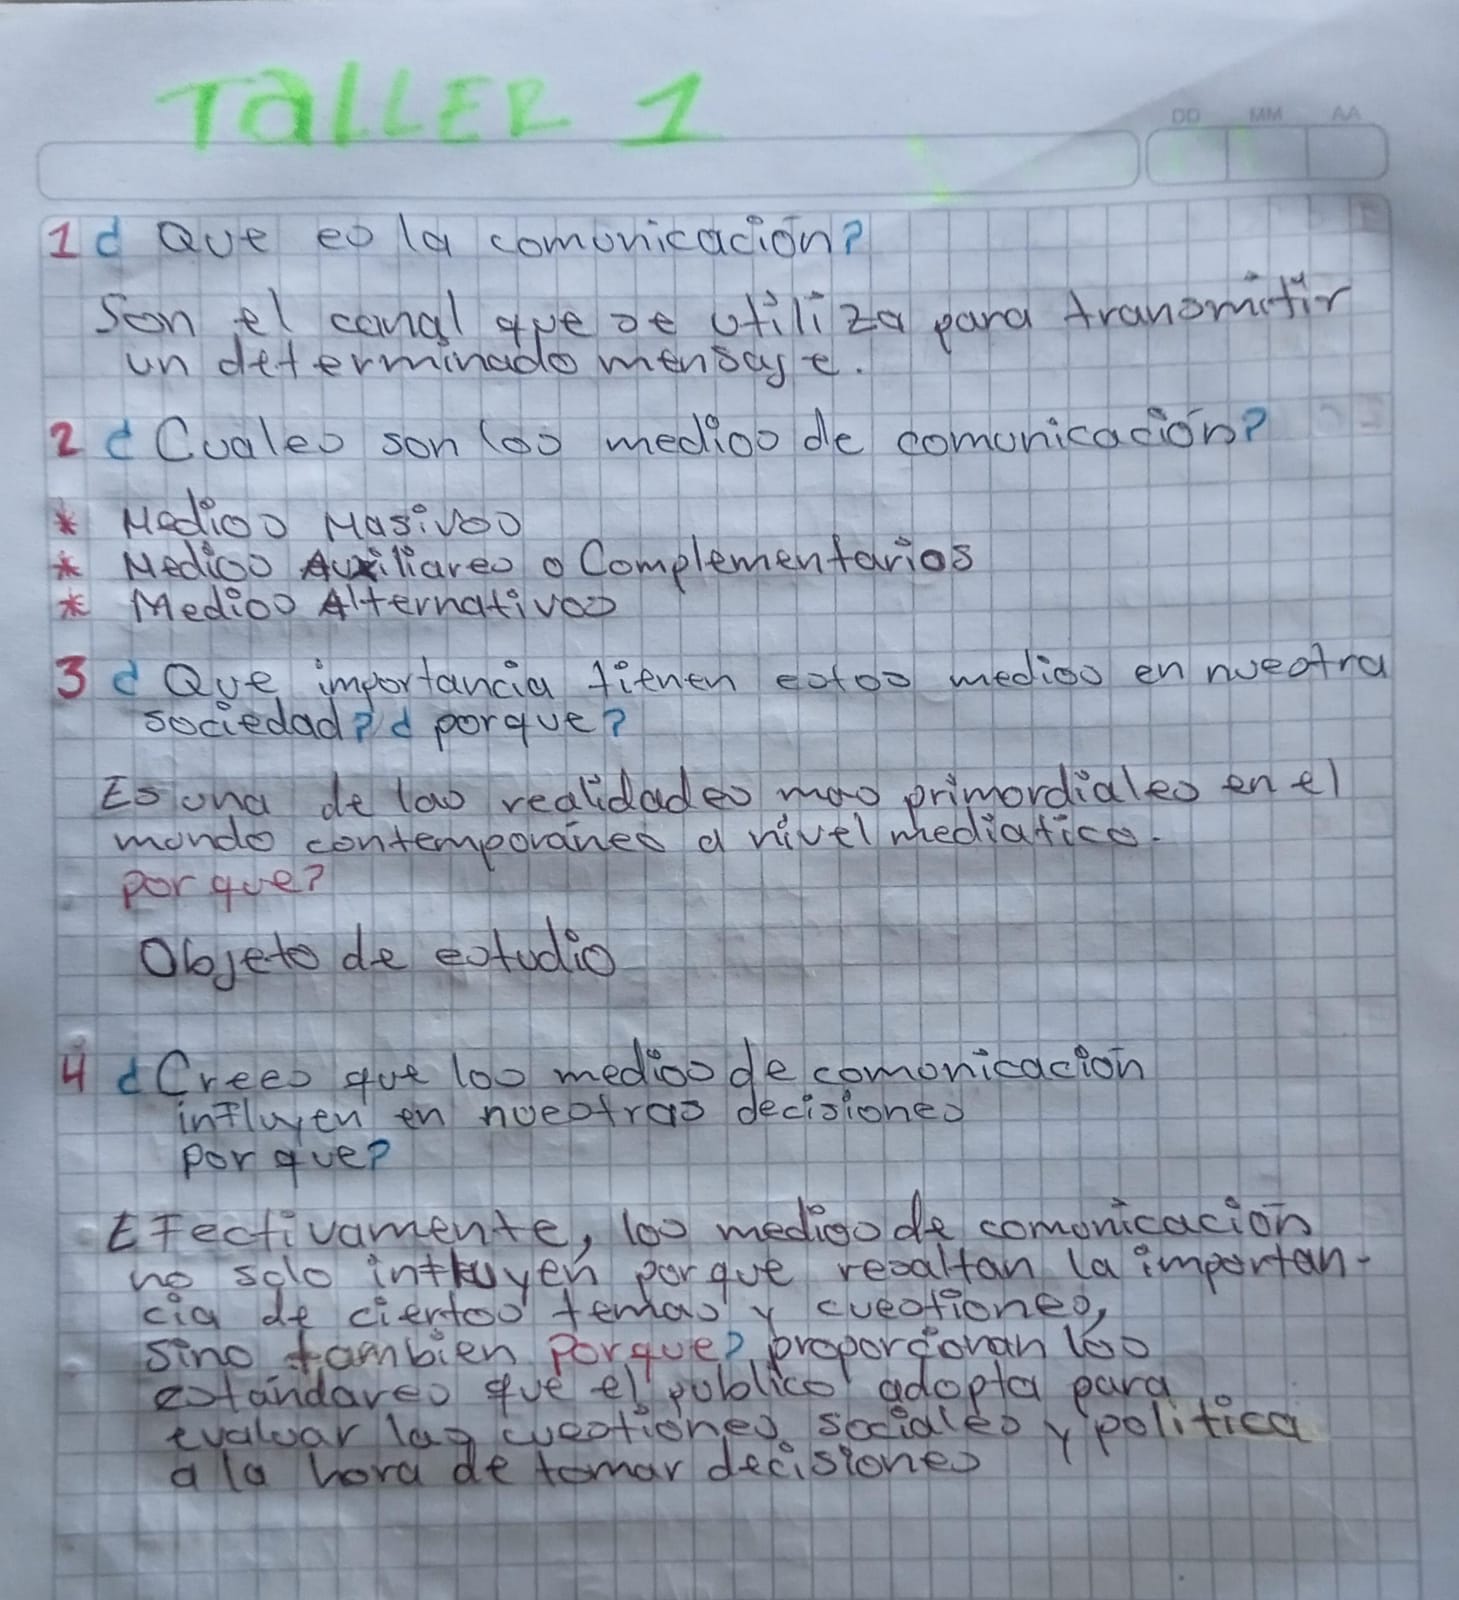 TALLER 1
DD MM AA
1 ¿Que es la comunicación?
Son el canal que se utiliza para transmitir
un determinado mensaje.
2 ¿Cuales son los medios de comunicación?
* Medios Masivos
* Medios Auxiliares o Complementarios
* Medios Alternativos
3 ¿Que importancia tienen estos medios en nuestra
sociedad? ¿porque?
Es una de las realidades mas primordiales en el
mundo contemporáneo a nivel mediatico.
porque?
Objeto de estudio
4 ¿Crees que los medios de comonicación
influyen en nuestras decisiones
porque?
Efectivamente, los medios de comonicación
no solo influyen porque resaltan la importan-
cia de ciertos temas y cuestiones,
sino tambien porque? proporcionan los
estándares que el publico adopta para
evaluar las cuestiones sociales y politica
a la hora de tomar decisiones